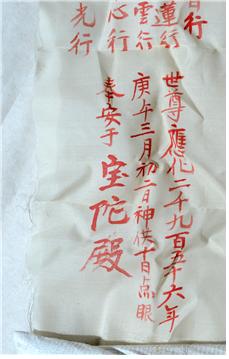 行
蓮行
雲行
心行
光行
世尊應化二千九百五十六年
庚午三月初二日神供十日点眼
奉安于宝陀殿